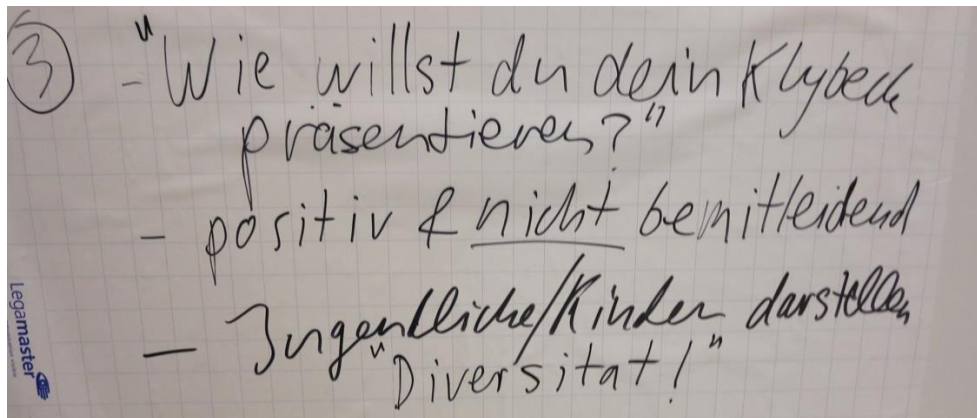 ③ - "Wie willst du dein Klybeck
präsentieren?"
- positiv & nicht bemitleidend
- Jugendliche/Kinder darstellen
"Diversitat!"
Legamaster